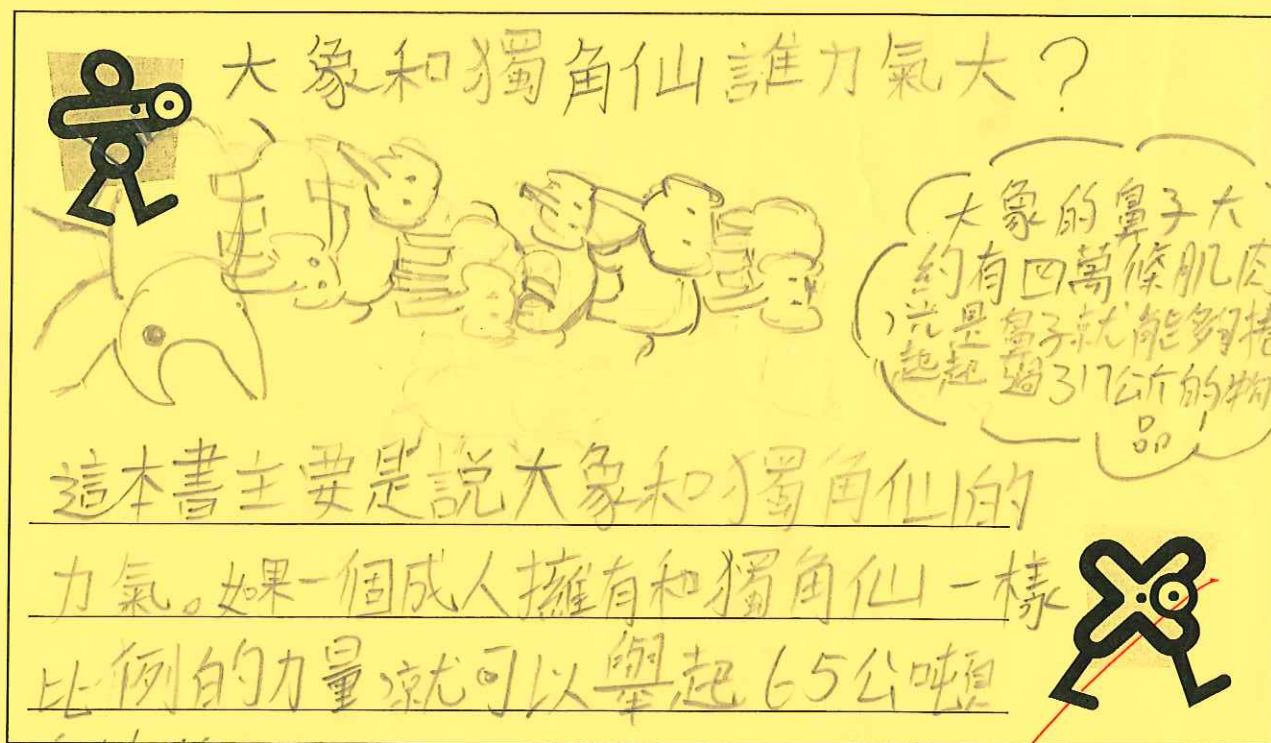 大象和獨角仙誰力氣大？
大象的鼻子大
約有四萬條肌肉
，光是鼻子就能夠捲
起超過317公斤的物
品！
這本書主要是說大象和獨角仙的
力氣。如果一個成人擁有和獨角仙一樣
比例的力量，就可以舉起65公噸